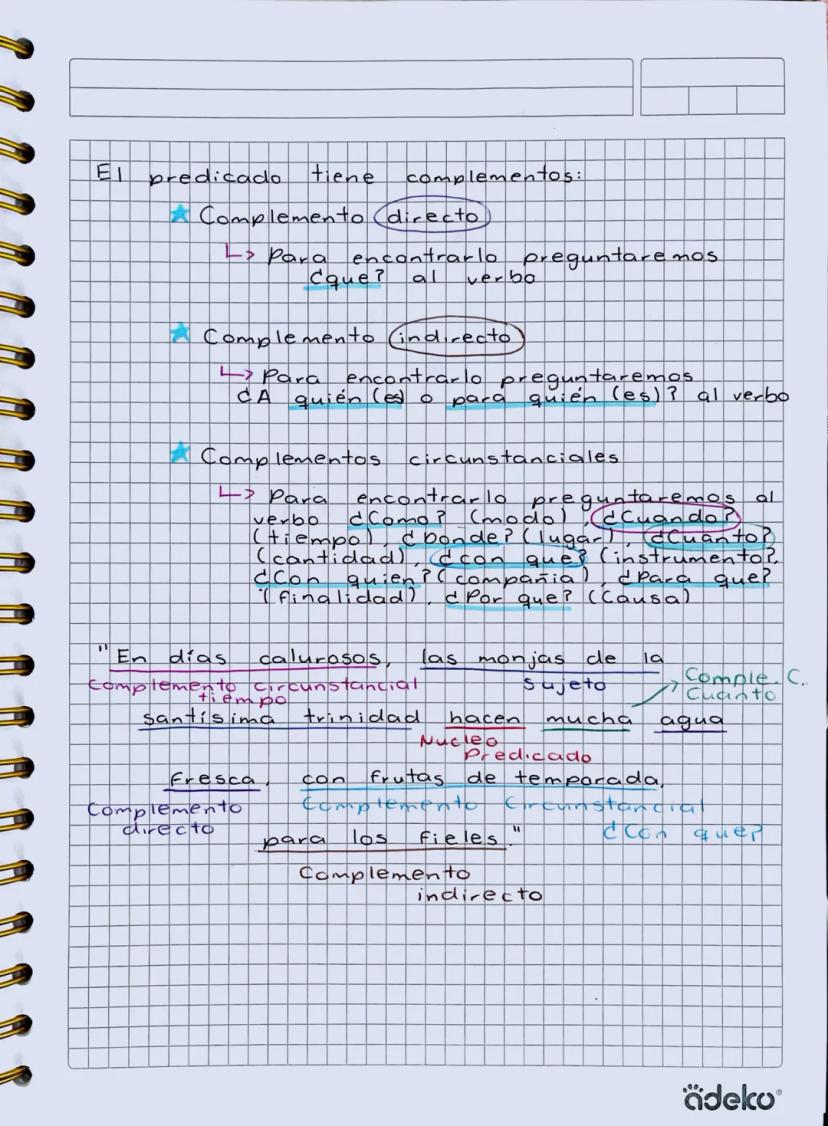 El predicado tiene complementos:
★ Complemento directo
↳ Para encontrarlo preguntaremos
¿que? al verbo
★ Complemento indirecto
↳ Para encontrarlo preguntaremos
¿A quién (es) o para quién (es)? al verbo
★ Complementos circunstanciales
↳ Para encontrarlo preguntaremos al
verbo ¿Como? (modo), ¿Cuando?
(tiempo), ¿Donde? (lugar), ¿Cuanto?
(cantidad), ¿con que? (instrumento?,
¿Con quien? (compañia), ¿Para que?
(finalidad), ¿Por que? (Causa)
"En días calurosos, las monjas de la
Complemento circunstancial tiempo
Sujeto
Comple. C.
Cuanto
santísima trinidad hacen mucha agua
Nucleo
Predicado
fresca, con frutas de temporada,
Complemento
directo
Complemento Circunstancial
¿Con que?
para los fieles."
Complemento
indirecto
adeko